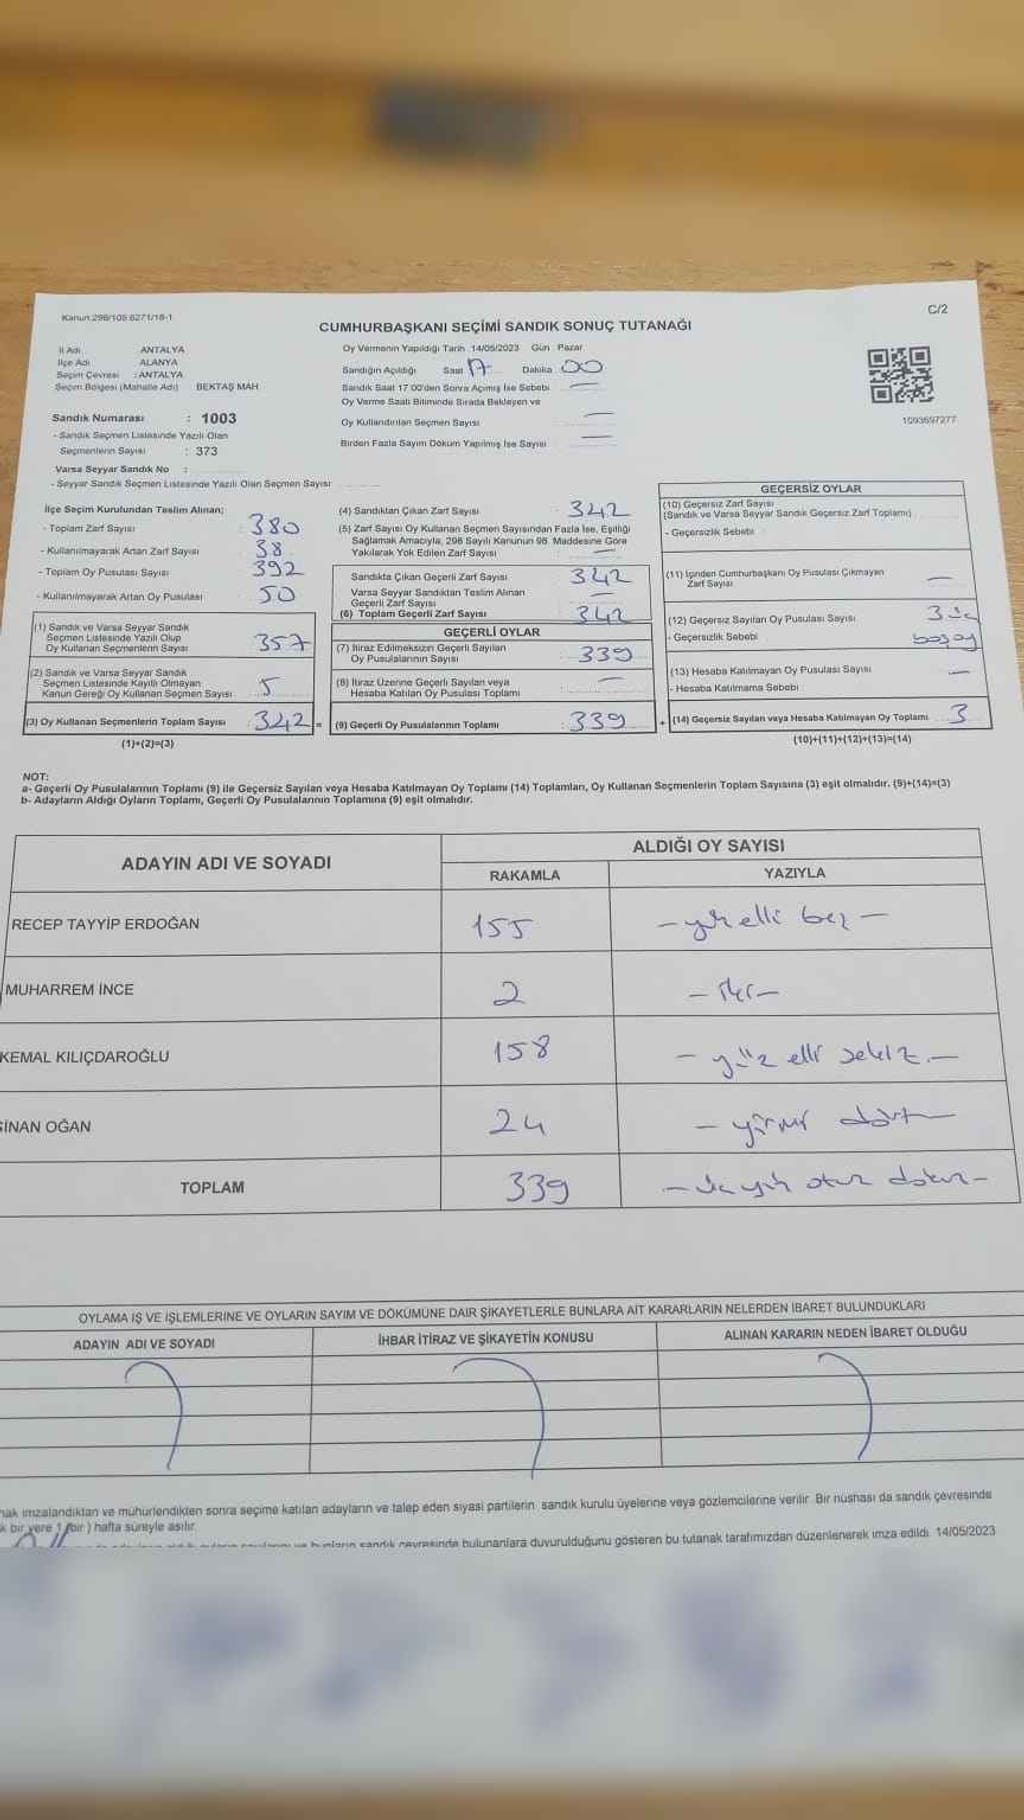 Kanun:298/105 6271/18-1
C/2
CUMHURBAŞKANI SEÇİMİ SANDIK SONUÇ TUTANAĞI
İl Adı : ANTALYA
İlçe Adı : ALANYA
Seçim Çevresi : ANTALYA
Seçim Bölgesi (Mahalle Adı) BEKTAŞ MAH
Sandık Numarası : 1003
- Sandık Seçmen Listesinde Yazılı Olan
Seçmenlerin Sayısı : 373
Varsa Seyyar Sandık No :
- Seyyar Sandık Seçmen Listesinde Yazılı Olan Seçmen Sayısı
Oy Vermenin Yapıldığı Tarih :14/05/2023 Gün : Pazar
Sandığın Açıldığı Saat 17 Dakika 00
Sandık Saat 17.00'den Sonra Açımış İse Sebebi —
Oy Verme Saati Bitiminde Sırada Bekleyen ve
Oy Kullandırılan Seçmen Sayısı —
Birden Fazla Sayım Döküm Yapılmış İse Sayısı —
1093697277
İlçe Seçim Kurulundan Teslim Alınan;
- Toplam Zarf Sayısı : 380
- Kullanılmayarak Artan Zarf Sayısı 38
- Toplam Oy Pusulası Sayısı 392
- Kullanılmayarak Artan Oy Pusulası 50
(1) Sandık ve Varsa Seyyar Sandık
Seçmen Listesinde Yazılı Olup
Oy Kullanan Seçmenlerin Sayısı 357
(2) Sandık ve Varsa Seyyar Sandık
Seçmen Listesinde Kayıtlı Olmayan
Kanun Gereği Oy Kullanan Seçmen Sayısı 5
(3) Oy Kullanan Seçmenlerin Toplam Sayısı : 342 =
(1)+(2)=(3)
(4) Sandıktan Çıkan Zarf Sayısı : 342
(5) Zarf Sayısı Oy Kullanan Seçmen Sayısından Fazla İse, Eşitliği
Sağlamak Amacıyla, 298 Sayılı Kanunun 98. Maddesine Göre
Yakılarak Yok Edilen Zarf Sayısı —
Sandıkta Çıkan Geçerli Zarf Sayısı 342
Varsa Seyyar Sandıktan Teslim Alınan
Geçerli Zarf Sayısı —
(6) Toplam Geçerli Zarf Sayısı 342
GEÇERLİ OYLAR
(7) İtiraz Edilmeksizin Geçerli Sayılan
Oy Pusulalarının Sayısı : 339
(8) İtiraz Üzerine Geçerli Sayılan veya
Hesaba Katılan Oy Pusulası Toplamı —
(9) Geçerli Oy Pusulalarının Toplamı : 339 +
GEÇERSİZ OYLAR
(10) Geçersiz Zarf Sayısı
(Sandık ve Varsa Seyyar Sandık Geçersiz Zarf Toplamı)
- Geçersizlik Sebebi
(11) İçinden Cumhurbaşkanı Oy Pusulası Çıkmayan
Zarf Sayısı —
(12) Geçersiz Sayılan Oy Pusulası Sayısı 3 üç
- Geçersizlik Sebebi boş oy
(13) Hesaba Katılmayan Oy Pusulası Sayısı —
- Hesaba Katılmama Sebebi
(14) Geçersiz Sayılan veya Hesaba Katılmayan Oy Toplamı 3
(10)+(11)+(12)+(13)=(14)
NOT:
a- Geçerli Oy Pusulalarının Toplamı (9) ile Geçersiz Sayılan veya Hesaba Katılmayan Oy Toplamı (14) Toplamları, Oy Kullanan Seçmenlerin Toplam Sayısına (3) eşit olmalıdır. (9)+(14)=(3)
b- Adayların Aldığı Oyların Toplamı, Geçerli Oy Pusulalarının Toplamına (9) eşit olmalıdır.
ADAYIN ADI VE SOYADI ALDIĞI OY SAYISI
RAKAMLA YAZIYLA
RECEP TAYYİP ERDOĞAN 155 - yüz elli beş -
MUHARREM İNCE 2 - iki -
KEMAL KILIÇDAROĞLU 158 - yüz elli sekiz -
SİNAN OĞAN 24 - yirmi dört -
TOPLAM 339 - üç yüz otuz dokuz -
OYLAMA İŞ VE İŞLEMLERİNE VE OYLARIN SAYIM VE DÖKÜMÜNE DAİR ŞİKAYETLERLE BUNLARA AİT KARARLARIN NELERDEN İBARET BULUNDUKLARI
ADAYIN ADI VE SOYADI İHBAR İTİRAZ VE ŞİKAYETİN KONUSU ALINAN KARARIN NEDEN İBARET OLDUĞU
nak imzalandıktan ve mühürlendikten sonra seçime katılan adayların ve talep eden siyasi partilerin sandık kurulu üyelerine veya gözlemcilerine verilir. Bir nüshası da sandık çevresinde
k bir yere 1 (bir ) hafta süreyle asılır.
bunların sandık çevresinde bulunanlara duyurulduğunu gösteren bu tutanak tarafımızdan düzenlenerek imza edildi. 14/05/2023